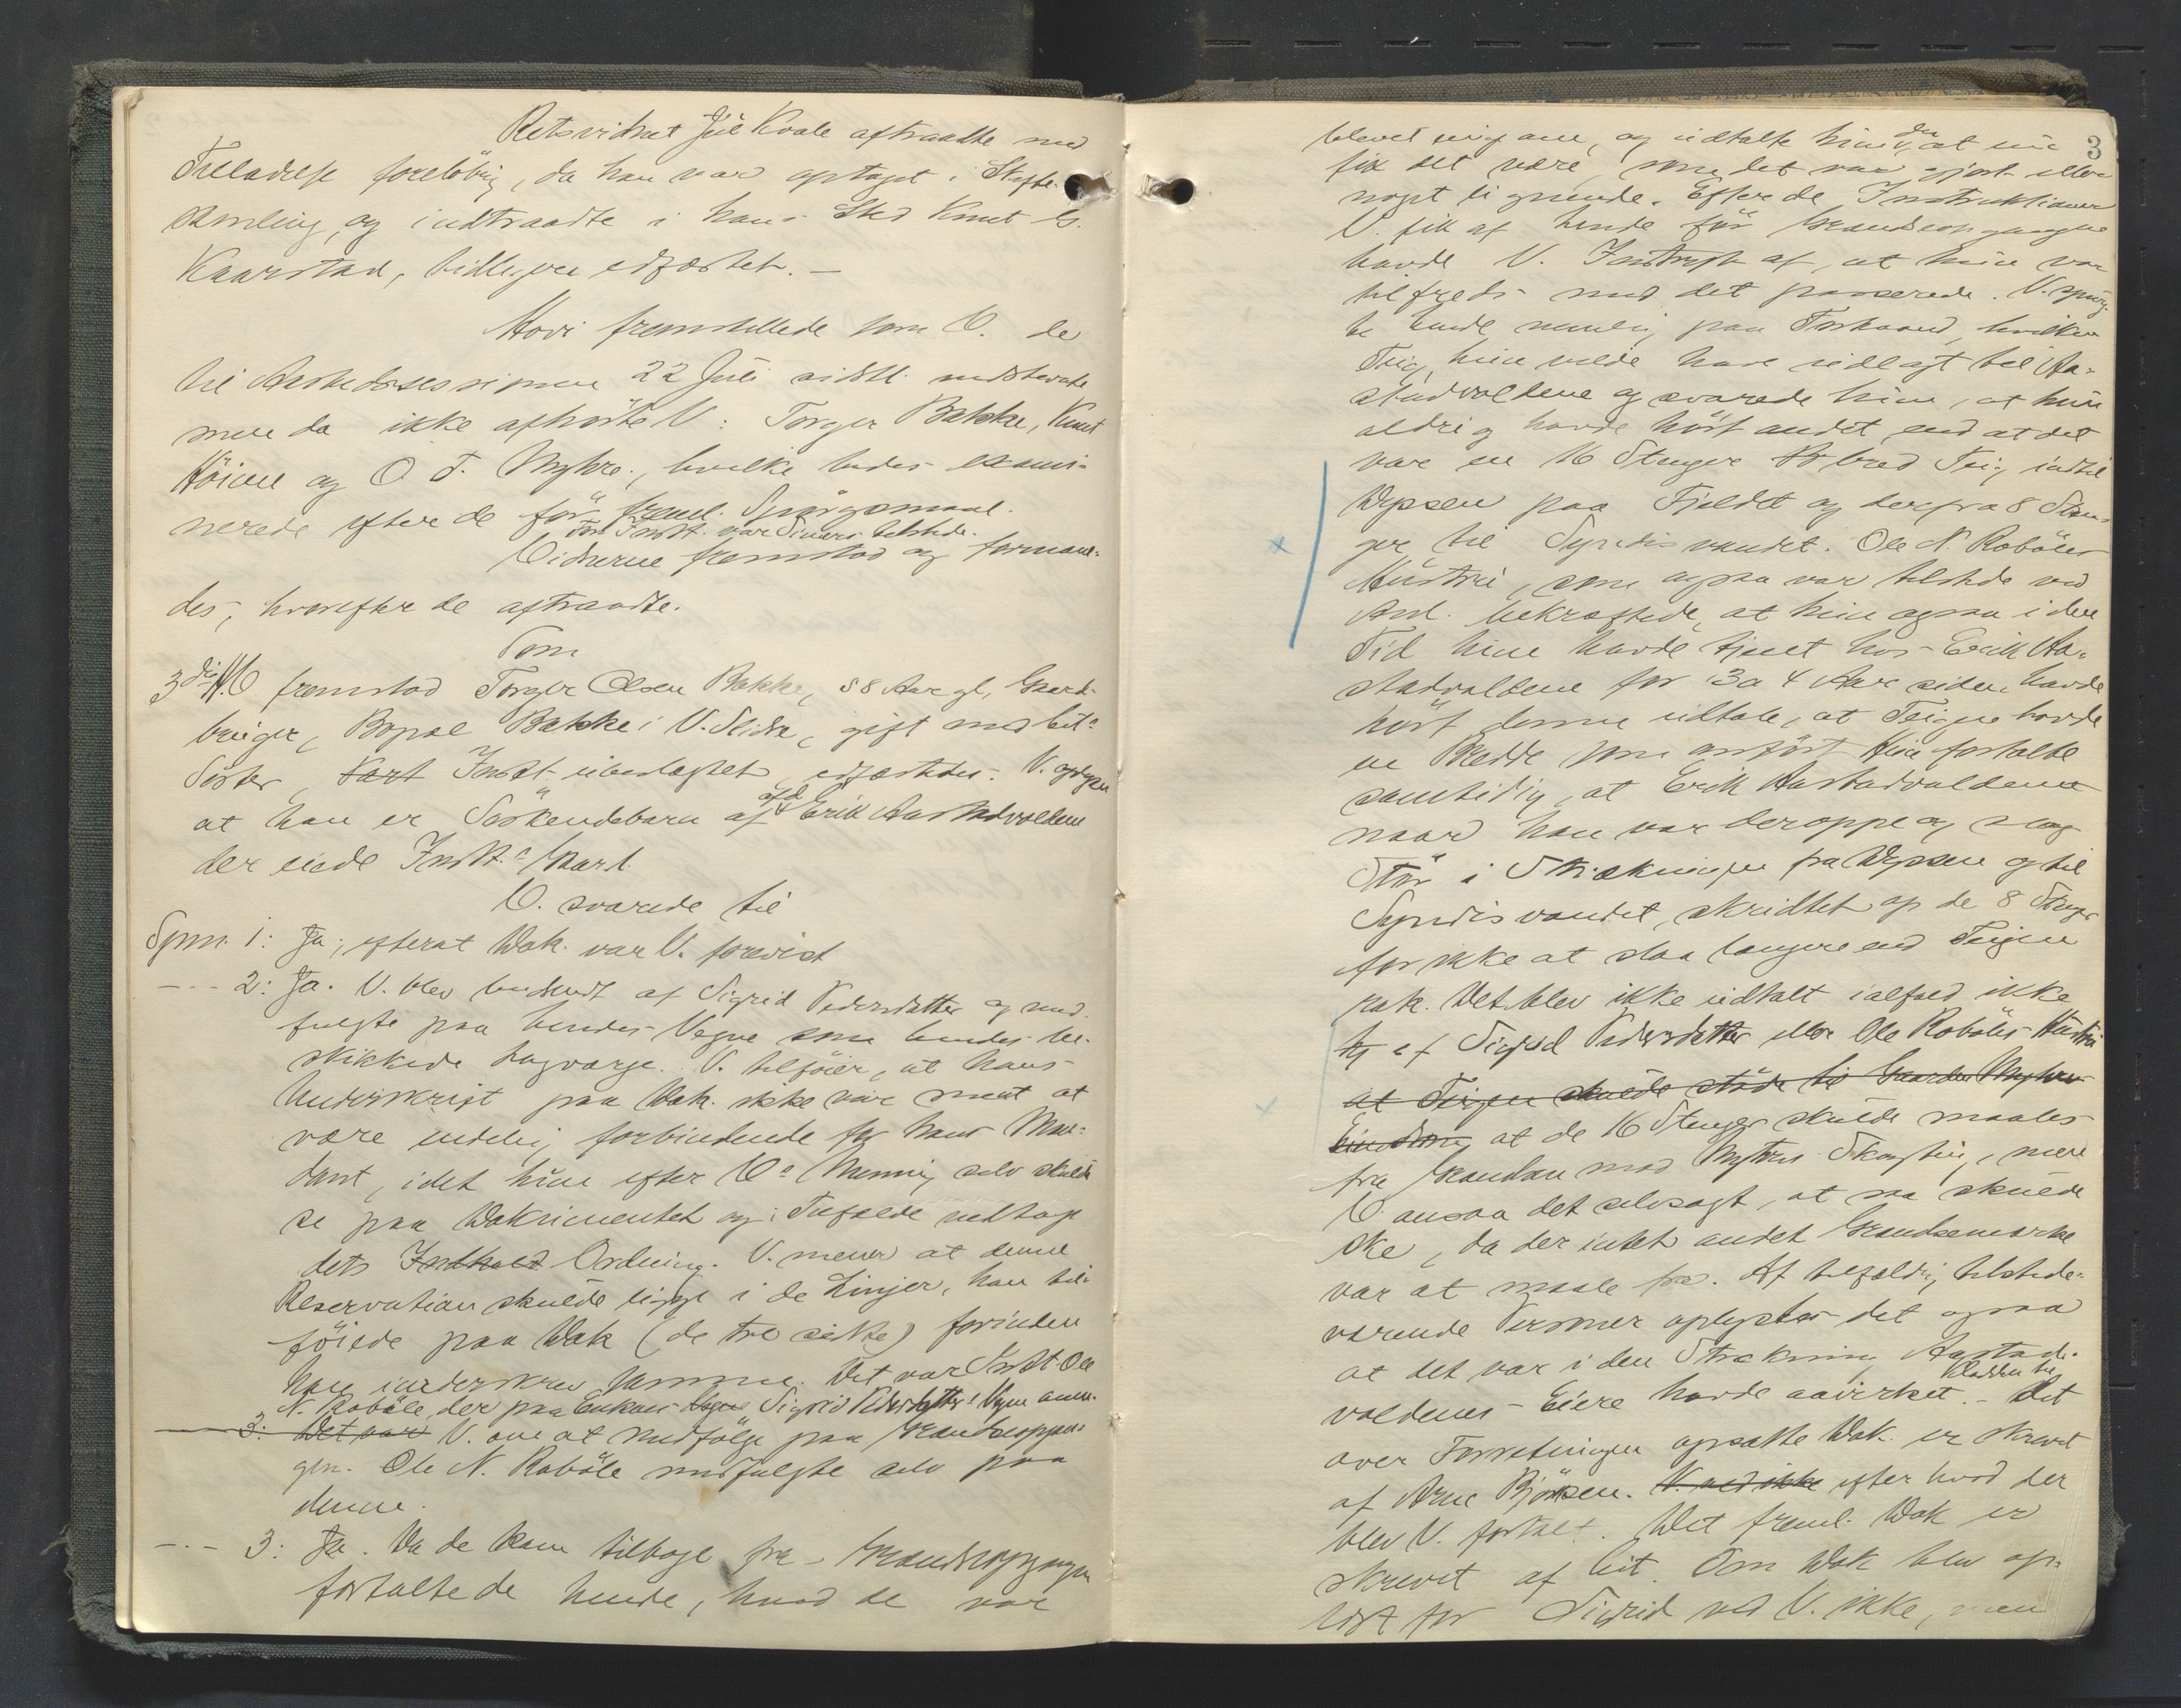 Retsvidnet Jul Kvale aftraadte med
Tilladelse foreløbig, da han var optaget i Skifte-
samling, og indtraadte i hans Sted Knut G.
Kaarstad, tidligere edfæstet. —
Hovi fremstillede som V. de
til Aastedssessionen 22 Juli sidstl. indstevnte
men da ikke afhørte V: Torger Bakke, Knut
Höime og O T. Myhre, hvilke bedes exami-
nerede efter de før freml. Spørgsmaal.
For Indst. var Siners tilstede.
Vidnerne fremstod og formane-
des, hvorefter de aftraadte.
Som
3die V fremstod Torger Olsen Bakke, 58 Aar gl, Gaard-
bruger, Bopæl Bakke i V. Slidre, gift med Cit.s
Søster, Indst. ubeslægtet, edfæstedes. V. oplyser
at han er Søskendebarn af afd Erik Aastadvolden
der eiede Indst.s Part.
V. svarede til
Spm. 1: Ja, efterat Dok. var V. forevist
-.- 2: Ja. V. blev budsendt af Sigrid Pedersdatter og med-
fulgte paa hendes Vegne som hendes be-
skikkede Lagværge. V. tilføier, at hans
Underskrift paa Dok. ikke var ment at
være endelig forbindende for hans Man-
dant, idet hun efter V.s Mening selv skulde
se paa Dokumentet og i Tilfælde vedtage
dets Indhold Ordning. V. mener at denne
Reservation skulde ligge i de Linjer, han til-
føiede paa Dok (de tre sidste) forinden
han underskrev samme. Det var Indst. Ole
N. Robøle, der paa Enkens Sigrid Pedersdatters Vegne anm.
3: Det var V. om at medfølge paa Grændseopgan-
gen. Ole N. Robøle medfulgte selv paa
denne.
-.- 3: Ja. Da de kom tilbage fra Grændseopgangen
fortalte de hende, hvad de var
3
blevet enig om, og udtalte hun da, at nu
fik det være, som det var gjort eller
noget lignende. Efter de Instruktioner
V. fik af hende før Grændseopgangen
havde V. Indtryk af, at hun var
tilfreds med det passerede. V. spurg-
te hende nemlig paa Forhaand, hvilken
Teig, hun vilde have udlagt til Aa-
stadvoldene og svarede hun, at hun
aldrig havde hørt andet, end at det
var en 16 Stenger bred Teig indtil
Vepsen paa Fjeldet og derfra 8 Sten-
ger til Syndisvandet. Ole N. Robøles
Hustru, som ogsaa var tilstede ved
Anl. bekræftede, at hun ogsaa i den
Tid hun havde tjent hos Erik Aa-
stadvoldene for 3 a 4 Aar siden havde
hørt denne udtale, at Teigen havde
en Bredde som anført. Hun fortalte
samtidig, at Erik Aastadvoldene
naar han var deroppe og slog
Stör i Strækningen fra Vepsen og til
Syndisvandet, skridtet op de 8 Stenger
for ikke at slaa længere end Teigen
rak. Det blev ikke udtalt ialfald ikke
af Sigrid Pedersdatter eller Ole Robøles Hustru
at Teigen skulde støde til Gaarden Myhres
Eiendom, at de 16 Stenger skulde maales
fra Grændsen mod Myhres Skogteig, men
V. ansaa det selvsagt, at saa skulde
ske, da der intet andet Grændsemærke
var at maale fra. Af tilfældig tilstede-
værende Personer oplystes det ogsaa
at det var i den Strækning Aastad-
voldenes Eiere havde aavirket. — Det
over Forretningen opsatte Dok. er skrevet
af Arne Björnsen. V. ved ikke efter hvad der
blev V. fortalt. Det freml. Dok er
skrevet af Cit. Om Dok blev op-
læst for Sigrid ved V. ikke, men